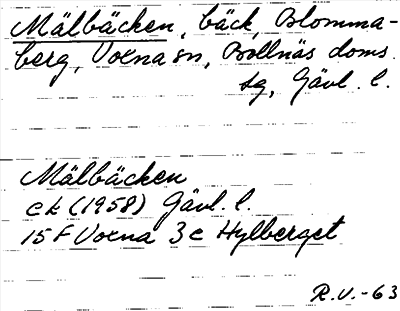 Mälbäcken, bäck, Blomma-
berg, Voxna sn, Bollnäs doms.
sg, Gävl. l.
Mälbäcken
ek (1958) Gävl. l.
15 F Voxna 3 c Hylberget
R.V.-63